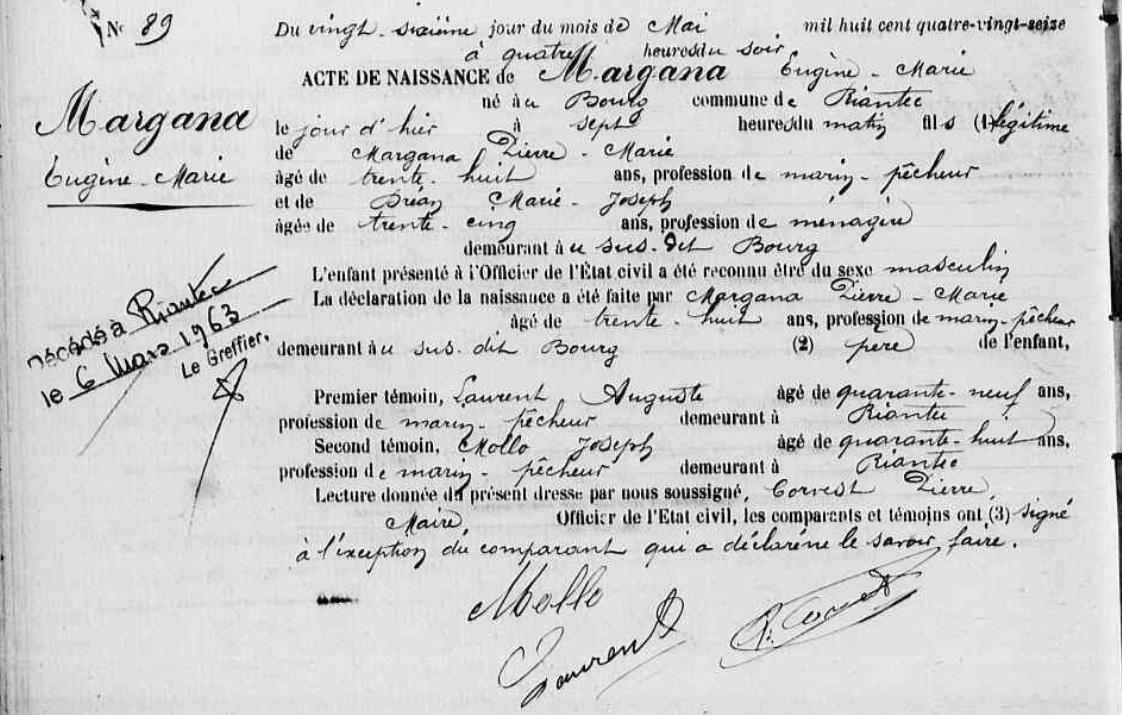 N° 89
Du vingt-sixième jour du mois de Mai mil huit cent quatre-vingt-seize
à quatre heures du soir
ACTE DE NAISSANCE de Margana Eugène-Marie
né au Bourg commune de Riantec
le jour d'hier à sept heures du matin fils (1) légitime
de Margana Pierre-Marie
âgé de trente-huit ans, profession de marin-pêcheur
et de Dréan Marie-Joseph
âgée de trente-cinq ans, profession de ménagère
demeurant à u sus-dit Bourg
L'enfant présenté à l'Officier de l'État civil a été reconnu être du sexe masculin
La déclaration de la naissance a été faite par Margana Pierre-Marie
âgé de trente-huit ans, profession de marin-pêcheur
demeurant à u sus-dit Bourg (2) père de l'enfant,
Premier témoin, Laurent Auguste âgé de quarante-neuf ans,
profession de marin-pêcheur demeurant à Riantec
Second témoin, Mollo Joseph âgé de quarante-huit ans,
profession de marin-pêcheur demeurant à Riantec
Lecture donnée du présent dresse par nous soussigné, Corvest Pierre,
Maire, Officier de l'Etat civil, les comparants et témoins ont (3) signé
à l'exception du comparant qui a déclaré ne le savoir faire.
Mollo
Laurent
Margana
Eugène-Marie
Décédé à Riantec
le 6 Mars 1963
Le Greffier.